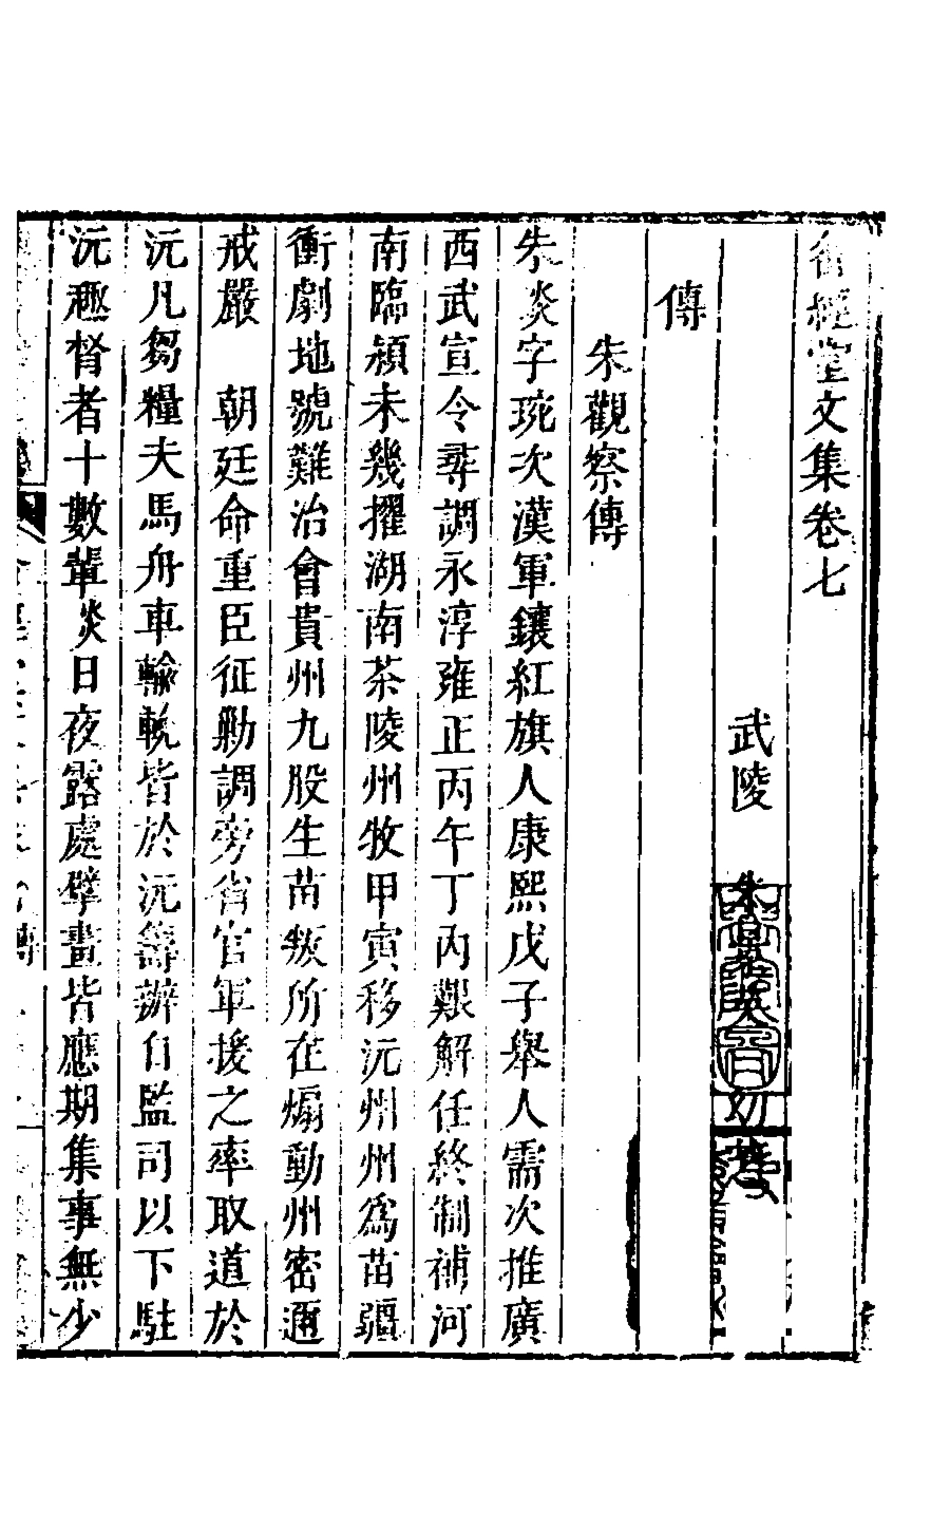 畬經堂文集卷七
武陵 朱景英 幼芝
傳
朱觀察傳
朱琰字琬次漢軍鑲紅旗人康熙戊子舉人需次推廣
西武宣令尋調永淳雍正丙午丁內艱解任終制補河
南臨潁未幾擢湖南茶陵州牧甲寅移沅州州爲苗疆
衝劇地號難治會貴州九股生苗叛所在煽動州密邇
戒嚴 朝廷命重臣征勦調旁省官軍援之率取道於
沅凡芻糧夫馬舟車輸輓皆於沅籌辦自監司以下駐
沅趣督者十數輩炎日夜露處擘畫皆應期集事無少